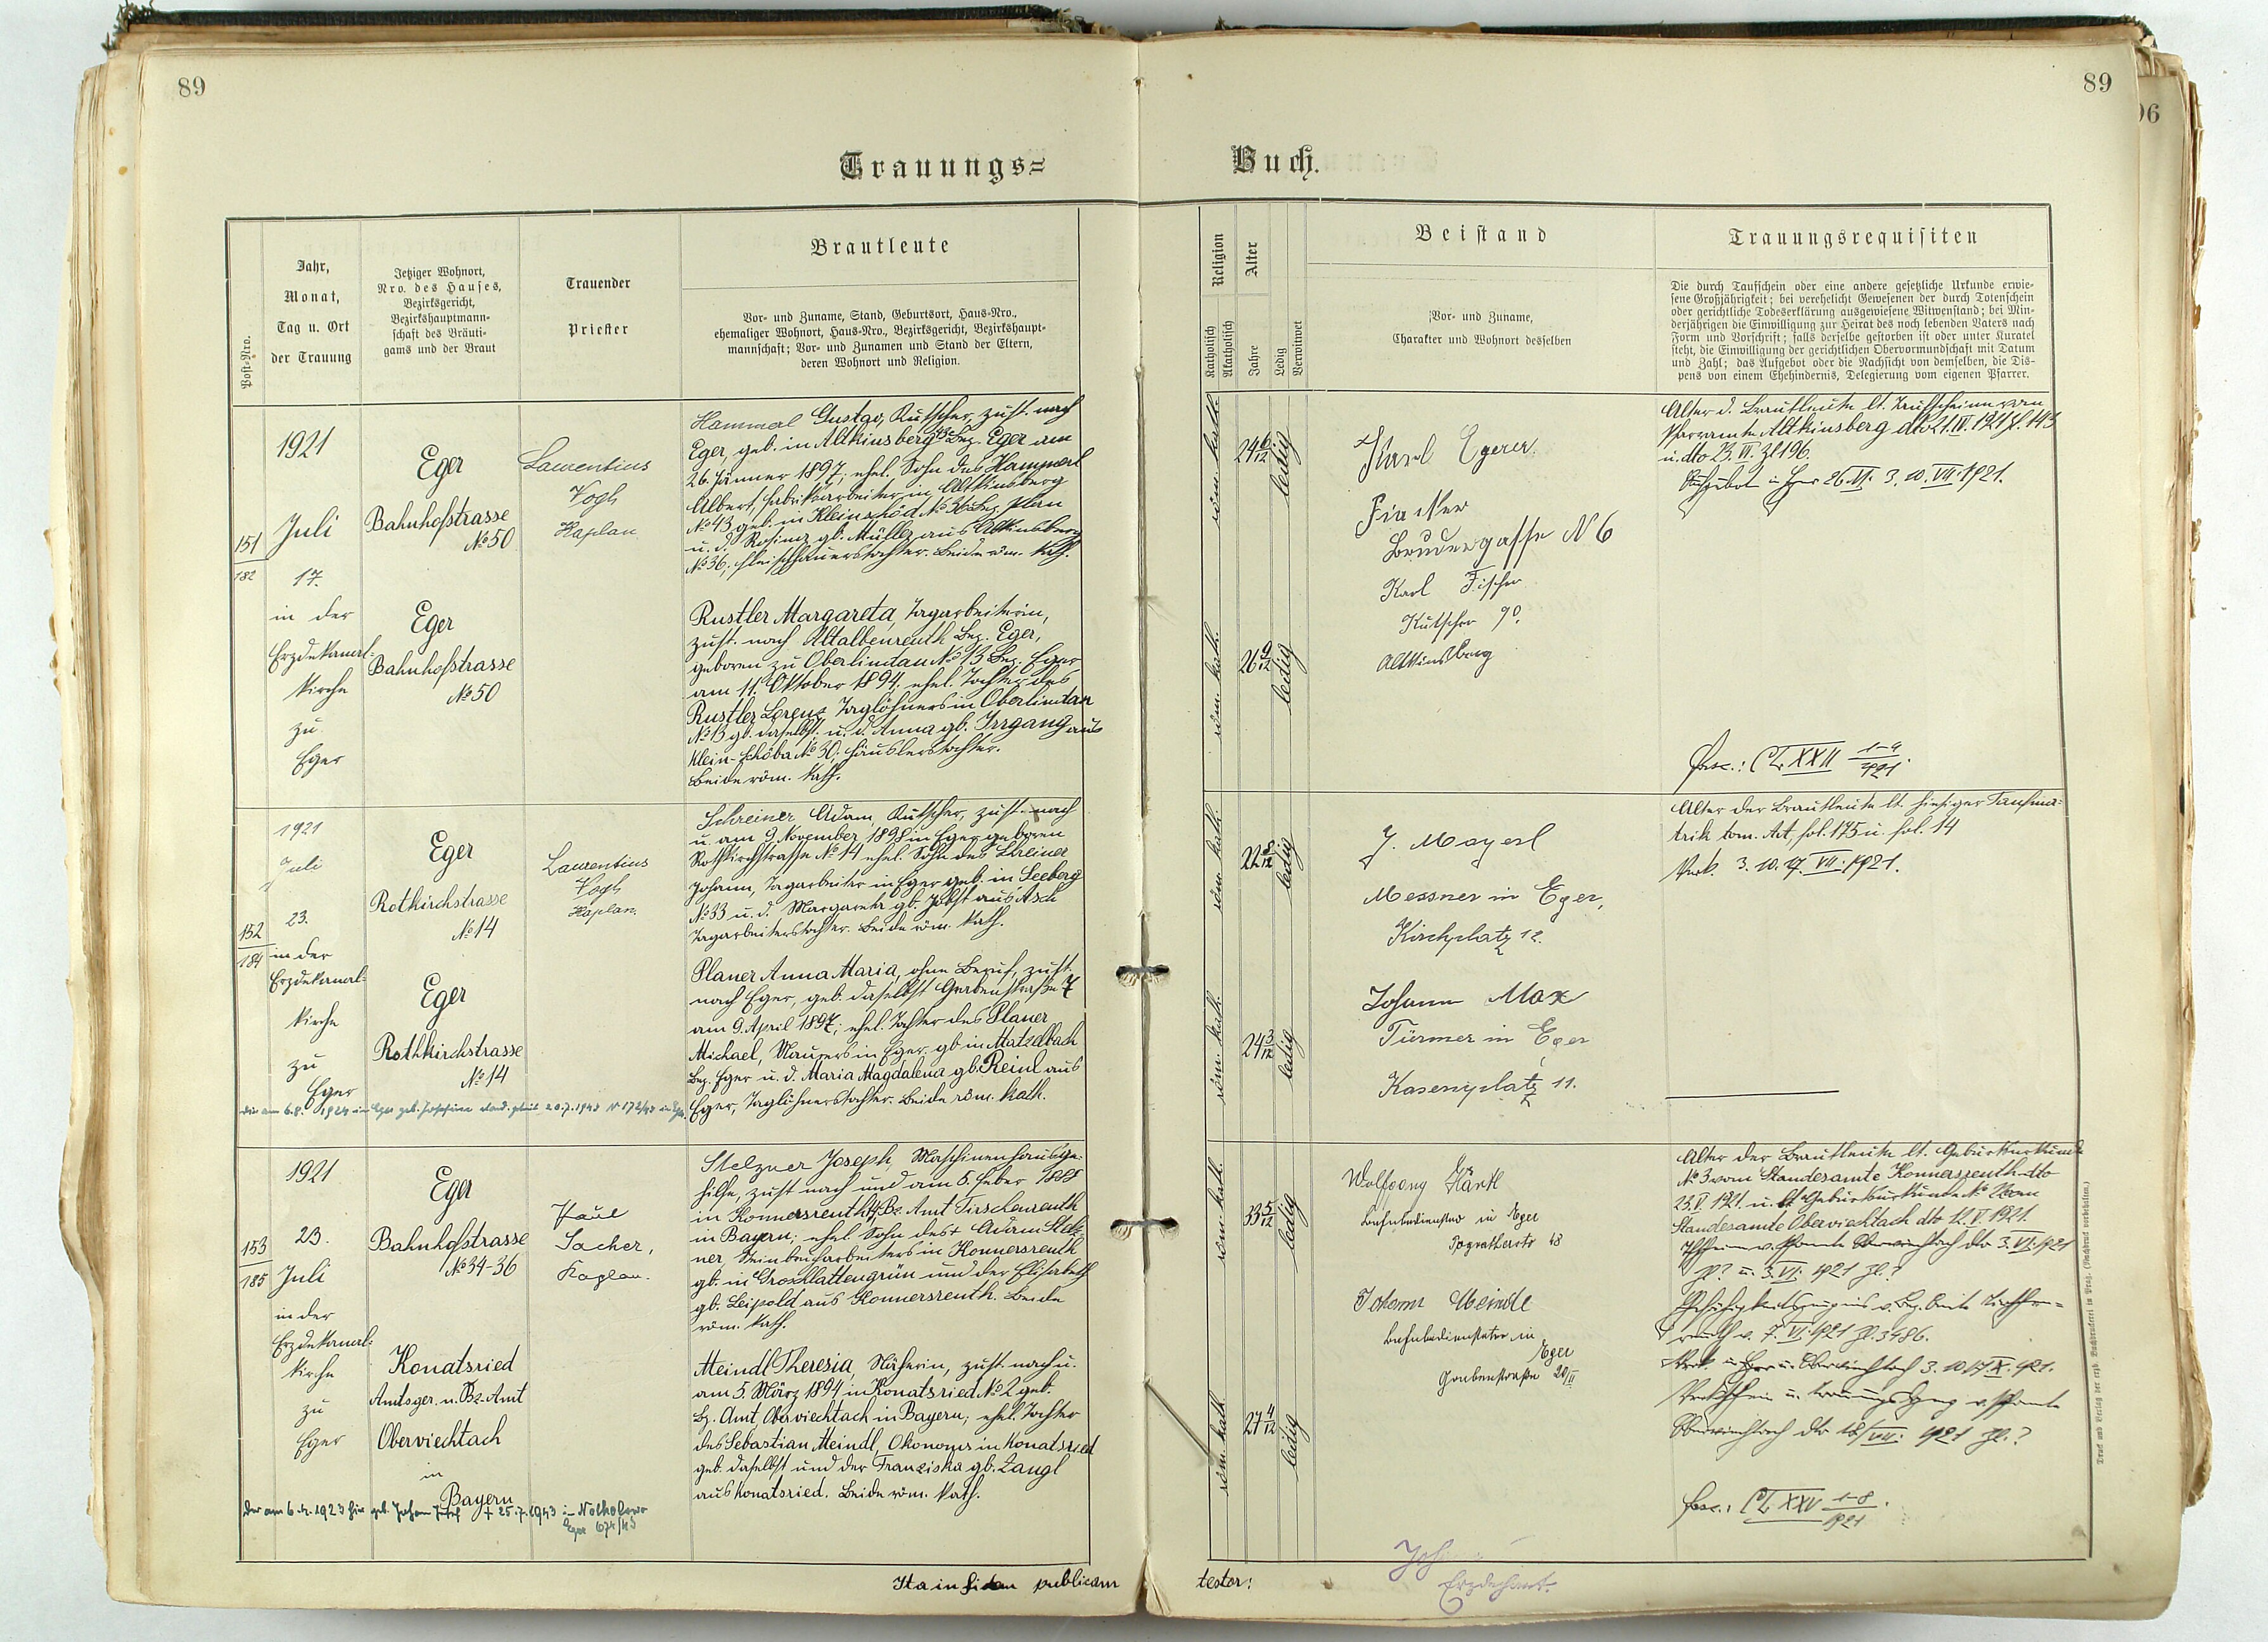 89
89
96
Trauungs=
Buch.
Post-Nro.
Jahr,
Monat,
Tag u. Ort
der Trauung
Jetziger Wohnort,
Nro. des Hauses,
Bezirksgericht,
Bezirkshauptmann-
schaft des Bräuti-
gams und der Braut
Trauender
Priester
Brautleute
Vor- und Zuname, Stand, Geburtsort, Haus-Nro.,
ehemaliger Wohnort, Haus-Nro., Bezirksgericht, Bezirkshaupt-
mannschaft; Vor- und Zunamen und Stand der Eltern,
deren Wohnort und Religion.
Religion
Katholisch
Akatholisch
Alter
Jahre
Ledig
Verwitwet
Beistand
Vor- und Zuname,
Charakter und Wohnort desselben
Trauungsrequisiten
Die durch Taufschein oder eine andere gesetzliche Urkunde erwie-
sene Großjährigkeit; bei verehelicht Gewesenen der durch Totenschein
oder gerichtliche Todeserklärung ausgewiesene Witwenstand; bei Min-
derjährigen die Einwilligung zur Heirat des noch lebenden Vaters nach
Form und Vorschrift; falls derselbe gestorben ist oder unter Kuratel
steht, die Einwilligung der gerichtlichen Obervormundschaft mit Datum
und Zahl; das Aufgebot oder die Nachsicht von demselben, die Dis-
pens von einem Ehehindernis, Delegierung vom eigenen Pfarrer.
151
182
1921
Juli
17.
in der
Erzdekanal-
kirche
zu
Eger
Eger
Bahnhofstrasse
No 50
Eger
Bahnhofstrasse
No 50
Laurentius
Vogh
Kaplan
Hammerl Gustav, Kutscher, zust. nach
Eger, geb. in Altkinsberg 43 Bez. Eger am
26. Jänner 1897; ehel. Sohn des Hammerl
Albert, Fabriksarbeiter in Altkinsberg
No 43 geb. in Kleinschöd No 36 Bez. Plan
u. d. Rosina gb. Müller aus Altkinsberg
No 36; Fleischhauerstochter. Beide röm. kath.
Rustler Margareta, Tagarbeiterin,
zust. nach Altalbenreuth Bez. Eger,
geboren zu Oberlindau No 13 Bez. Eger
am 11. Oktober 1894, ehel. Tochter des
Rustler Lorenz Taglöhners in Oberlindau
No 13 gb. daselbst. u. d. Anna gb. Irrgang aus
Klein-Schöba No 30; Häuslerstochter.
Beide röm. kath.
röm. kath.
24 6/12
ledig
röm. kath.
26 9/12
ledig
Karl Egerer
Fiaker
Brudergasse N 6
Karl Fischer
Kutscher 90.
Altkinsberg
Alter d. Brautleute lt. Taufscheine vom
Pfarramte Altkinsberg dto 21.IV.1921 Zl. 143
u. dto 23. VI. Zl 196.
Aufgebot in Eger 26.VI. 3. 10. VII. 1921.
fasc.: CL XXII 1-4/1921.
152
184
1921
Juli
23.
in der
Erzdekanal-
kirche
zu
Eger
Eger
Rotkirchstrasse
No 14
Eger
Rothkirchstrasse
No 14
Laurentius
Vogh
Kaplan.
Schreiner Adam, Kutscher, zust. nach
u. am 9. November 1898 in Eger geboren
Rothkirchstrasse No 14 ehel. Sohn des Schreiner
Johann, Tagarbeiter in Eger geb. in Seeberg
No 33 u. d. Margareta gb. Jobst aus Asch
Tagarbeiterstochter. Beide röm. kath.
Planer Anna Maria, ohne Beruf, zust.
nach Eger, geb. daselbst Grabenstrasse 7
am 9. April 1897; ehel. Tochter des Planer
Michael, Maurers in Eger gb in Matzelbach
Bez. Eger u. d. Maria Magdalena gb. Reinl aus
Eger, Taglöhnerstochter. Beide röm. kath.
röm. kath.
22 8/12
ledig
röm. kath.
24 3/12
ledig
J. Mayerl
Messner in Eger,
Kirchplatz 12.
Johann Max
Türmer in Eger
Kasernplatz 11.
Alter der Brautleute lt. hiesiger Taufma-
trik tom. Art, fol. 175 u. fol. 14
Verk. 3. 10. 17. VII. 1921.
153
185
1921
23.
Juli
in der
Erzdekanal-
kirche
zu
Eger
Eger
Bahnhofstrasse
No 34-36
Konatsried
Amtsger. u. Bz-Amt
Oberviechtach
in
Bayern
Paul
Sacher,
Kaplan.
Stelzner Joseph, Maschinenhausge-
hilfe, zust nach und am 5. Feber 1888
in Konnersreuth Bz. Amt Tirschenreuth
in Bayern; ehel Sohn des + Adam Stelz-
ner, Steinbrucharbeiters in Konnersreuth
gb. in Grosklattengrün und der Elisabeth
gb. Leipold aus Konnersreuth. Beide
röm. kath.
Meindl Theresia, Näherin, zust. nach u.
am 5. März 1894 in Konatsried No 2 geb.
Bz. Amt, Oberviechtach in Bayern; ehel. Tochter
des Sebastian Meindl, Ökonoms in Konatsried
geb. daselbst und der Franziska gb. Zangl
aus Konatsried. Beide röm. kath.
der am 6. 4. 1923 hier geb. Johann Josef + 25.7.1943
röm. kath.
33 5/12
ledig
röm. kath.
27 4/12
ledig
Wolfgang Härtl
Bahnbediensteter in Eger
48
Johann Meindl
Bahnbediensteter in
Eger
Grabenstraße 20/II
Alter der Brautleute lt. Geburtsurkunde
No 3 vom Standesamte Konnersreuth dto
23.V.1921. u. lt. Geburtsurkunde No vom
Standesamte Oberviechtach dto 12.V.1921.
v. 7. VI. 1921 Zl. 3486.
fasc.: CL XXV 1-8/1921.
Ita in fidem publicam
testor:
Erzdechant.
Druck und Verlag der erzb. Buchdruckerei in Prag. (Nachdruck vorbehalten.)